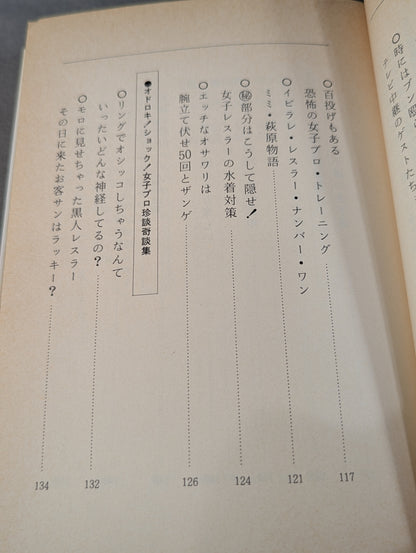 ○時にはブン殴
テレビ中継のゲストたち
○百投げもある
恐怖の女子プロ・トレーニング
117
○イビラレ・レスラー・ナンバー・ワン
ミミ・萩原物語
121
○㊙部分はこうして隠せ!
女子レスラーの水着対策
124
○エッチなオサワリは
腕立て伏せ50回とザンゲ
126
●オドロキ!ショック!女子プロ珍談奇談集
○リングでオシッコしちゃうなんて
いったいどんな神経してるの?
132
○モロに見せちゃった黒人レスラー
その日に来たお客サンはラッキー?
134